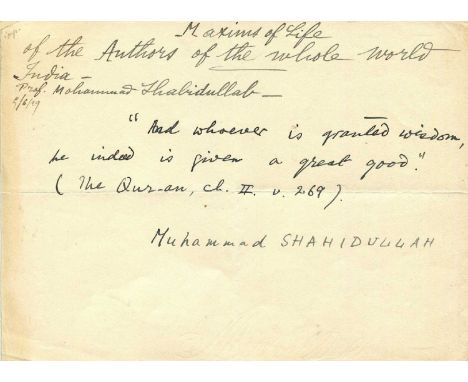 Maxims of Life
of the Authors of the whole world
India —
Prof. Mohammad Shahidullah —
2/6/29
"And whoever is granted wisdom,
he indeed is given a great good."
(The Qur-an, ch. II. v. 269).
Muhammad SHAHIDULLAH